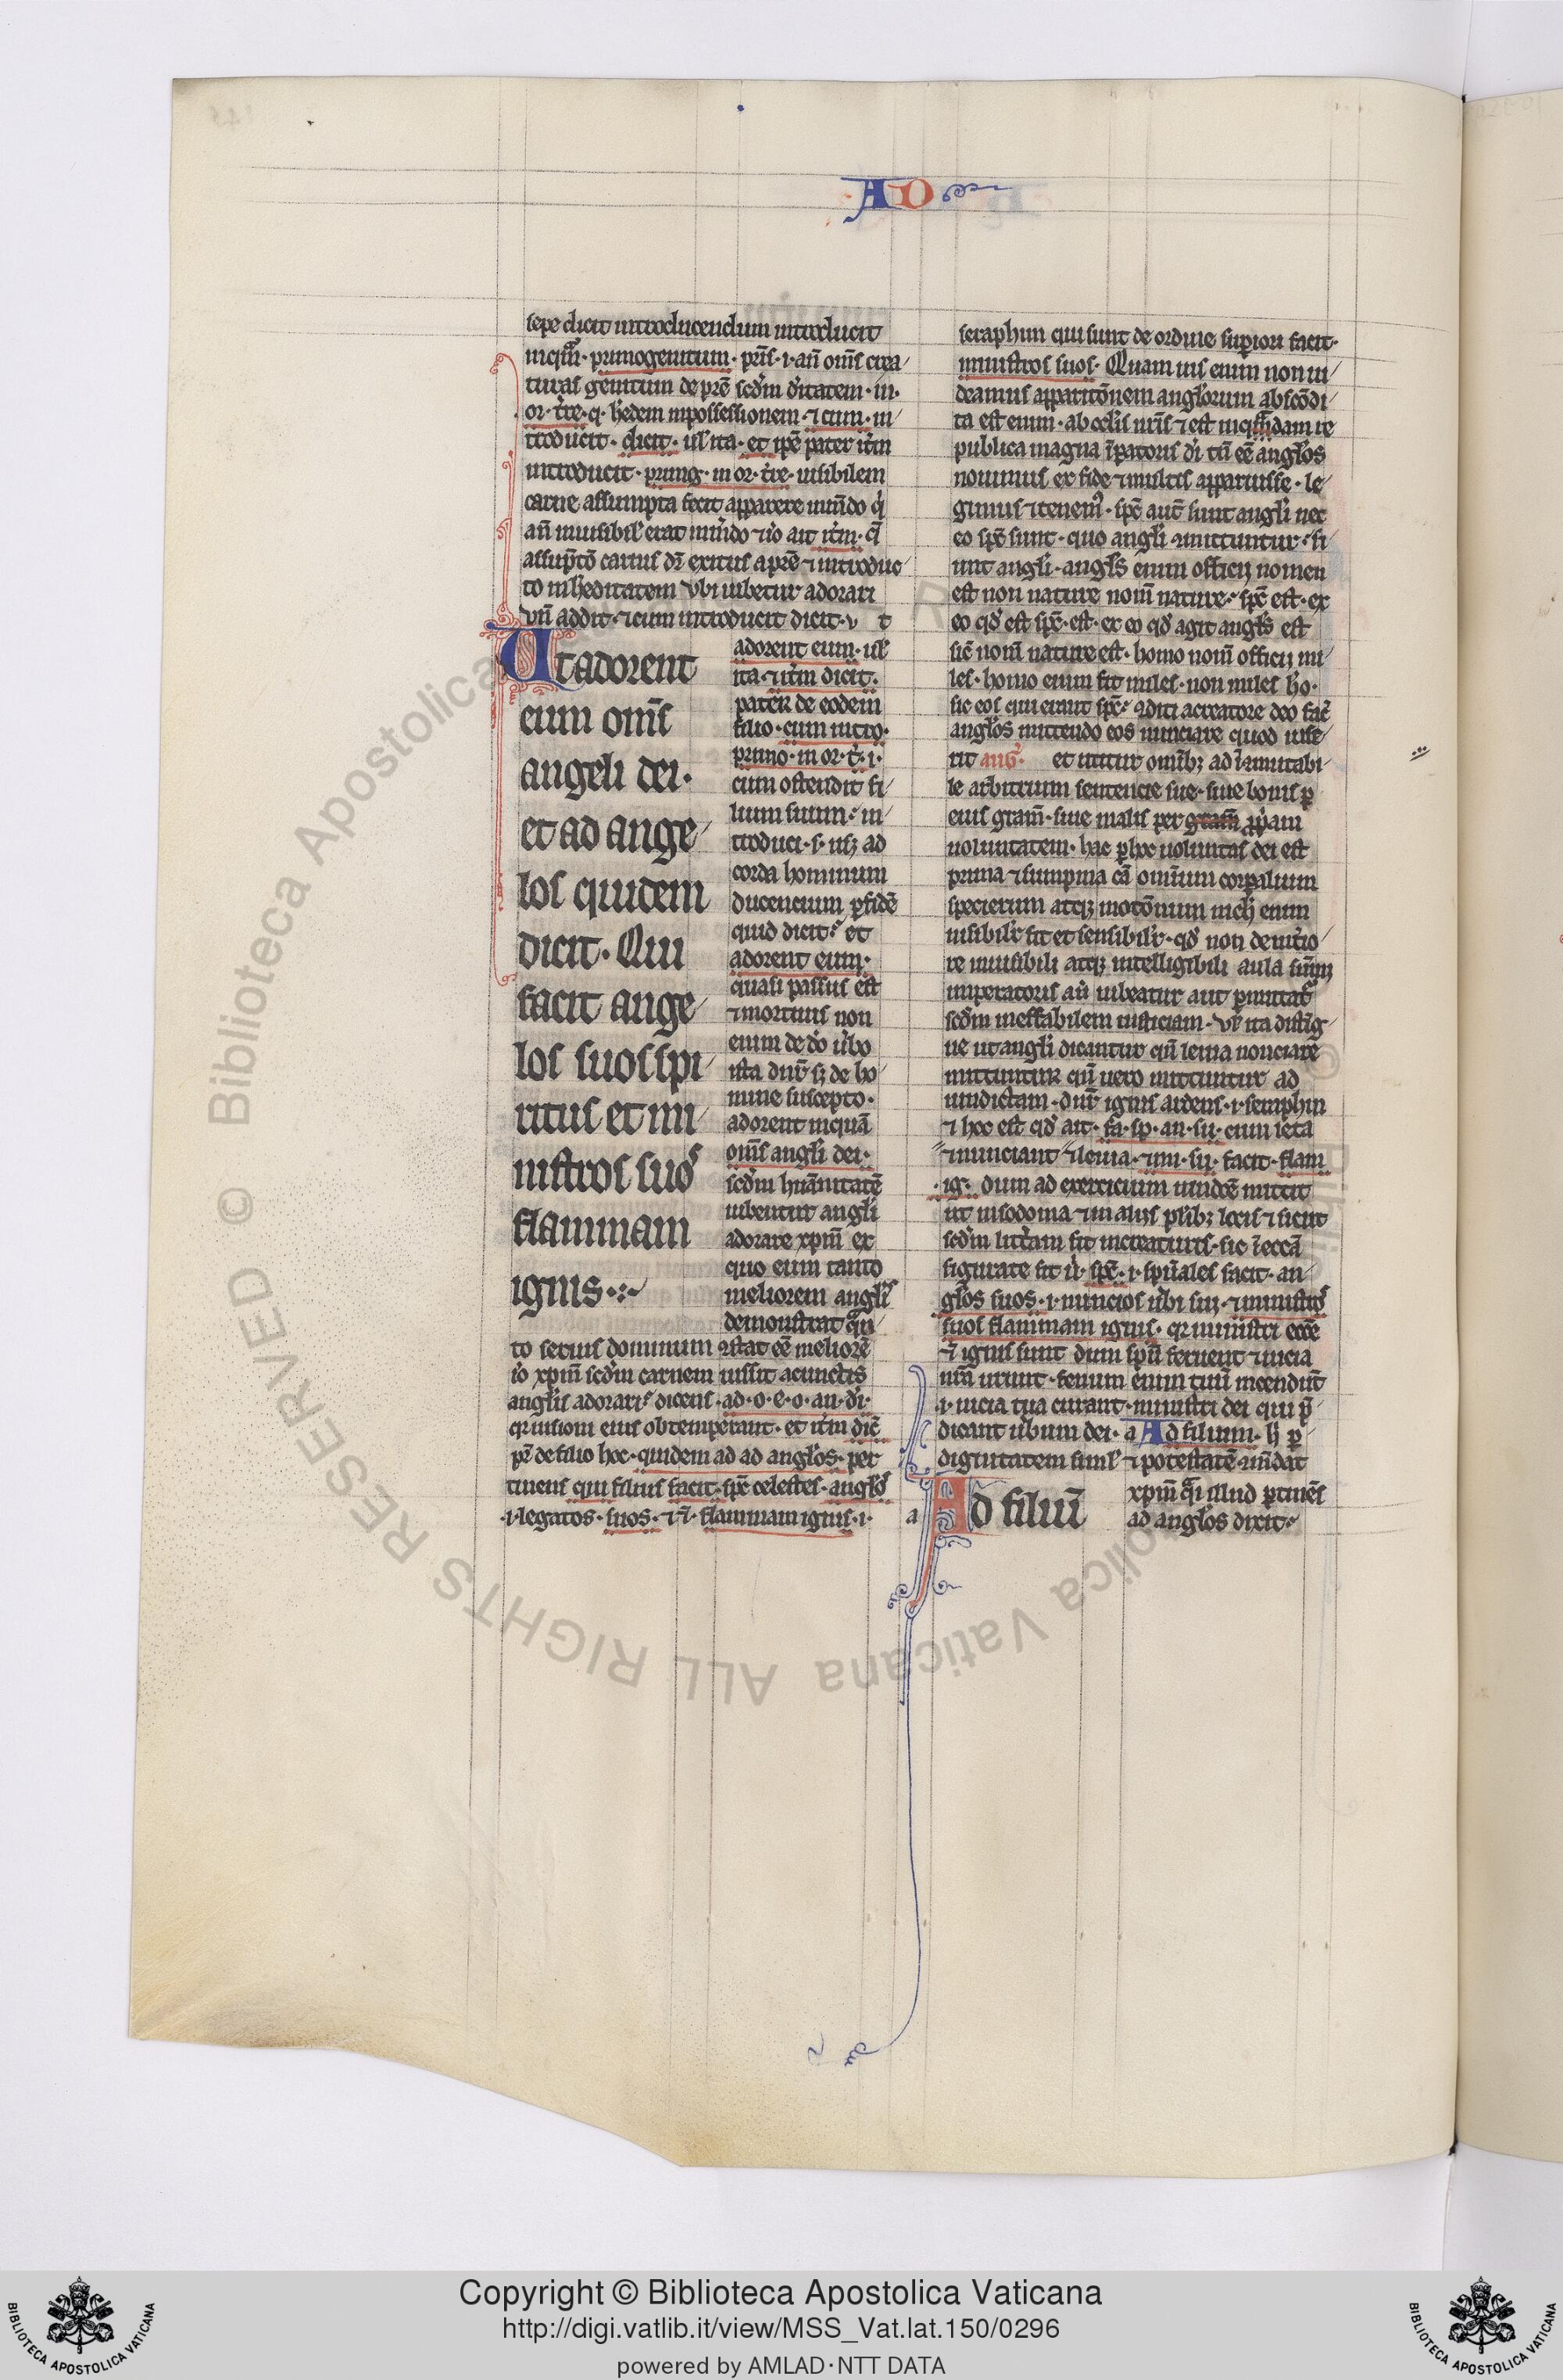 AD
sepe dicit introducendum introducit
inquam · primogenitum · pris̄ · i · añ om̄s crea
turas genitum de prē scd̄m d̄itatem · in ·
or · tr̄e · q · h̄edem in possessionem · ⁊ cum · in
troducit · dicit · ul̄ ita · et ip̄e pater it̄m
introducit · primog · in or · tr̄e · uisibilem
carne assumpta fecit apparere mundo q̇
añ inuisibil̄ erat mundo ⁊ iō ait it̄m · q̄
assūptō carnis dr̄ exitus a prē ⁊ introduc
to in h̄editatem Vbi iubetur adorari
vñ addit · ⁊ cum introducit dicit · v t
Et adorent
eum om̄s
angeli dei ·
et ad ange
los quidem
dicit · Qui
facit ange
los suos spi
ritus et mi
nistros suos
flammam
ignis
adorent eum · ul̄
ita · ⁊ it̄m dicit ·
pater de eodem
filio · cum intro ·
primo · in or · t̄ · i ·
cum ostendit fi
lium suum · in
troduci · s · usq; ad
corda hominum
ducencium p fidē
quid dicit · et
adorent eum ·
quasi passus est
⁊ mortuus non
enim de dō ūbo
ista dnr̄ sꝫ de ho
mine suscepto ·
adorent inquā
om̄s angl̄i dei ·
scd̄m hūanitatē
iubentur angl̄i
adorare xp̄m ex
quo eum tanto
meliorem angl̄is
demonstrat quan
to seruis dominum 9stat eē meliorē
iō xp̄m scd̄m carnem iussit a cunctis
angl̄is adorari dicens · ad · o · e · o · an · di ·
qr iussioni eius obtemperant · et it̄m dic̄
pr̄ de filio hoc · quidem ad ad angl̄os · per
tinens qui filius facit · spc̄ celestes · angl̄os
· i · legatos · suos · ⁊ · flammam ignis · i ·
seraphim qui sunt de ordine superiori facit ·
ministros suos · Quam uis enim non ui
deamus apparitōnem angl̄orum abscōdi
ta est enim · ab oc̄lis nr̄is ⁊ est in quadam re
publica magna īpatoris di tn̄ eē angl̄os
nouimus ex fide ⁊ multis apparuisse · le
gimus ⁊ tenem9 · spc̄ aut̄ sunt angl̄i nec
eo spc̄ sunt · quo angl̄i ⁊ mittuntur · fi
unt angl̄i · angl̄s enim officij nomen
est non nature nom̄ nature · spc̄ est · ex
eo qd̄ est spc̄ · est · ex eo qd̄ agit angl̄s est
sic̄ nom̄ nature est · homo nom̄ officij mi
les · homo enim fit miles · non miles hō ·
sic eos qui erant spc̄ 9diti a creatore deo fac̄
angl̄os mittendo eos nunciare quod iusse
rit auḡ · et utitur omībꝫ ad īcōmutabi
le arbitrium sentencie sue · siue bonis p
eius gram̄ · siue malis per propriam
uoluntatem · hac p hoc uoluntas dei est
prima ⁊ summa cā omnium corpalium
specierum atqꝫ motōnum nichil enim
uisibilr̄ fit et sensibilr̄ · qd̄ non de int̄io
re inuisibili atqꝫ intelligibili aula summi
imperatoris aū iubeatur aut permittat̄
scd̄m ineffabilem iusticiam · Vl̄ ita disting
ue ut angl̄i dicantur cū leuia nonciare
mittuntur cū uero mittuntur ad
uindictam · dnr̄ ignis ardens · i · seraphin
⁊ hoc est qd̄ ait · fa · sp · an · su · cum leta
⁊ nunciant ⁊ leuia · ⁊ mi · su · facit · flam
· ig · dum ad exercicium uindcē mittit
ut in sodoma ⁊ in alijs plībꝫ locis ⁊ sicut
scd̄m litt̄am fit in creaturis · sic ī eccā
figurate fit ū · spc̄ · i · sp̄uales facit · an
gl̄os suos · i · nuncios ūbi sui · ⁊ ministros
suos flammam ignis · qr ministri ecc̄e
⁊ ignis sunt dum sp̄u feruent ⁊ uicia
nr̄a urunt · fenum enim tuū incendūt
· i · uicia tua curant · ministri dei qui p̄
dicant ūbum dei · a Ad filium · h̄ p
dignitatem siml̄ ⁊ potestatē 9m̄dat
a Ad filiū
xp̄m qsi illud ptinēs
ad angl̄os dixit
Copyright © Biblioteca Apostolica Vaticana
http://digi.vatlib.it/view/MSS_Vat.lat.150/0296
powered by AMLAD·NTT DATA
BIBLIOTECA APOSTOLICA VATICANA
BIBLIOTECA APOSTOLICA VATICANA
© Biblioteca Apostolica Vaticana ALL RIGHTS RESERVED